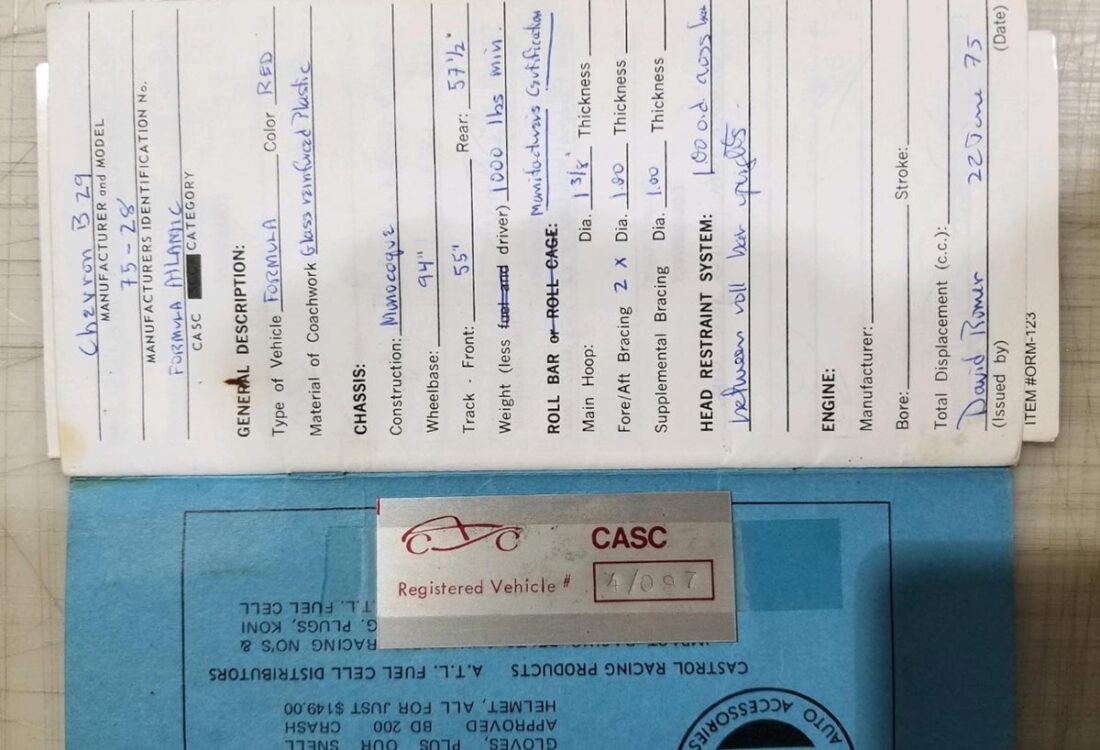 Chevron B 29
MANUFACTURER and MODEL
75-28
MANUFACTURERS IDENTIFICATION No.
FORMULA ATLANTIC
CASC CATEGORY
GENERAL DESCRIPTION:
Type of Vehicle FORMULA Color RED
Material of Coachwork Glass reinforced Plastic
CHASSIS:
Construction: Monocoque
Wheelbase: 94"
Track - Front: 55" Rear: 57 1/2"
Weight (less fuel and driver) 1000 lbs min.
Manufacturers Certification
ROLL BAR or ROLL CAGE:
Main Hoop: Dia. 1 3/8" Thickness
Fore/Aft Bracing 2 X Dia. 1.00 Thickness
Supplemental Bracing Dia. 1.00 Thickness
HEAD RESTRAINT SYSTEM: 1.00 o.d cross bar
between roll bar uprights.
ENGINE:
Manufacturer:
Bore: Stroke:
Total Displacement (c.c.):
David Romer 22 June 75
(Issued by) (Date)
ITEM #ORM-123
CASC
Registered Vehicle # 4/097
AUTO ACCESSORIES
GLOVES, PLUS OUR SNELL
APPROVED BD 200 CRASH
HELMET, ALL FOR JUST $149.00
CASTROL RACING PRODUCTS A.T.L. FUEL CELL DISTRIBUTORS
RACING NO'S &
G. PLUGS, KONI
T.L. FUEL CELL